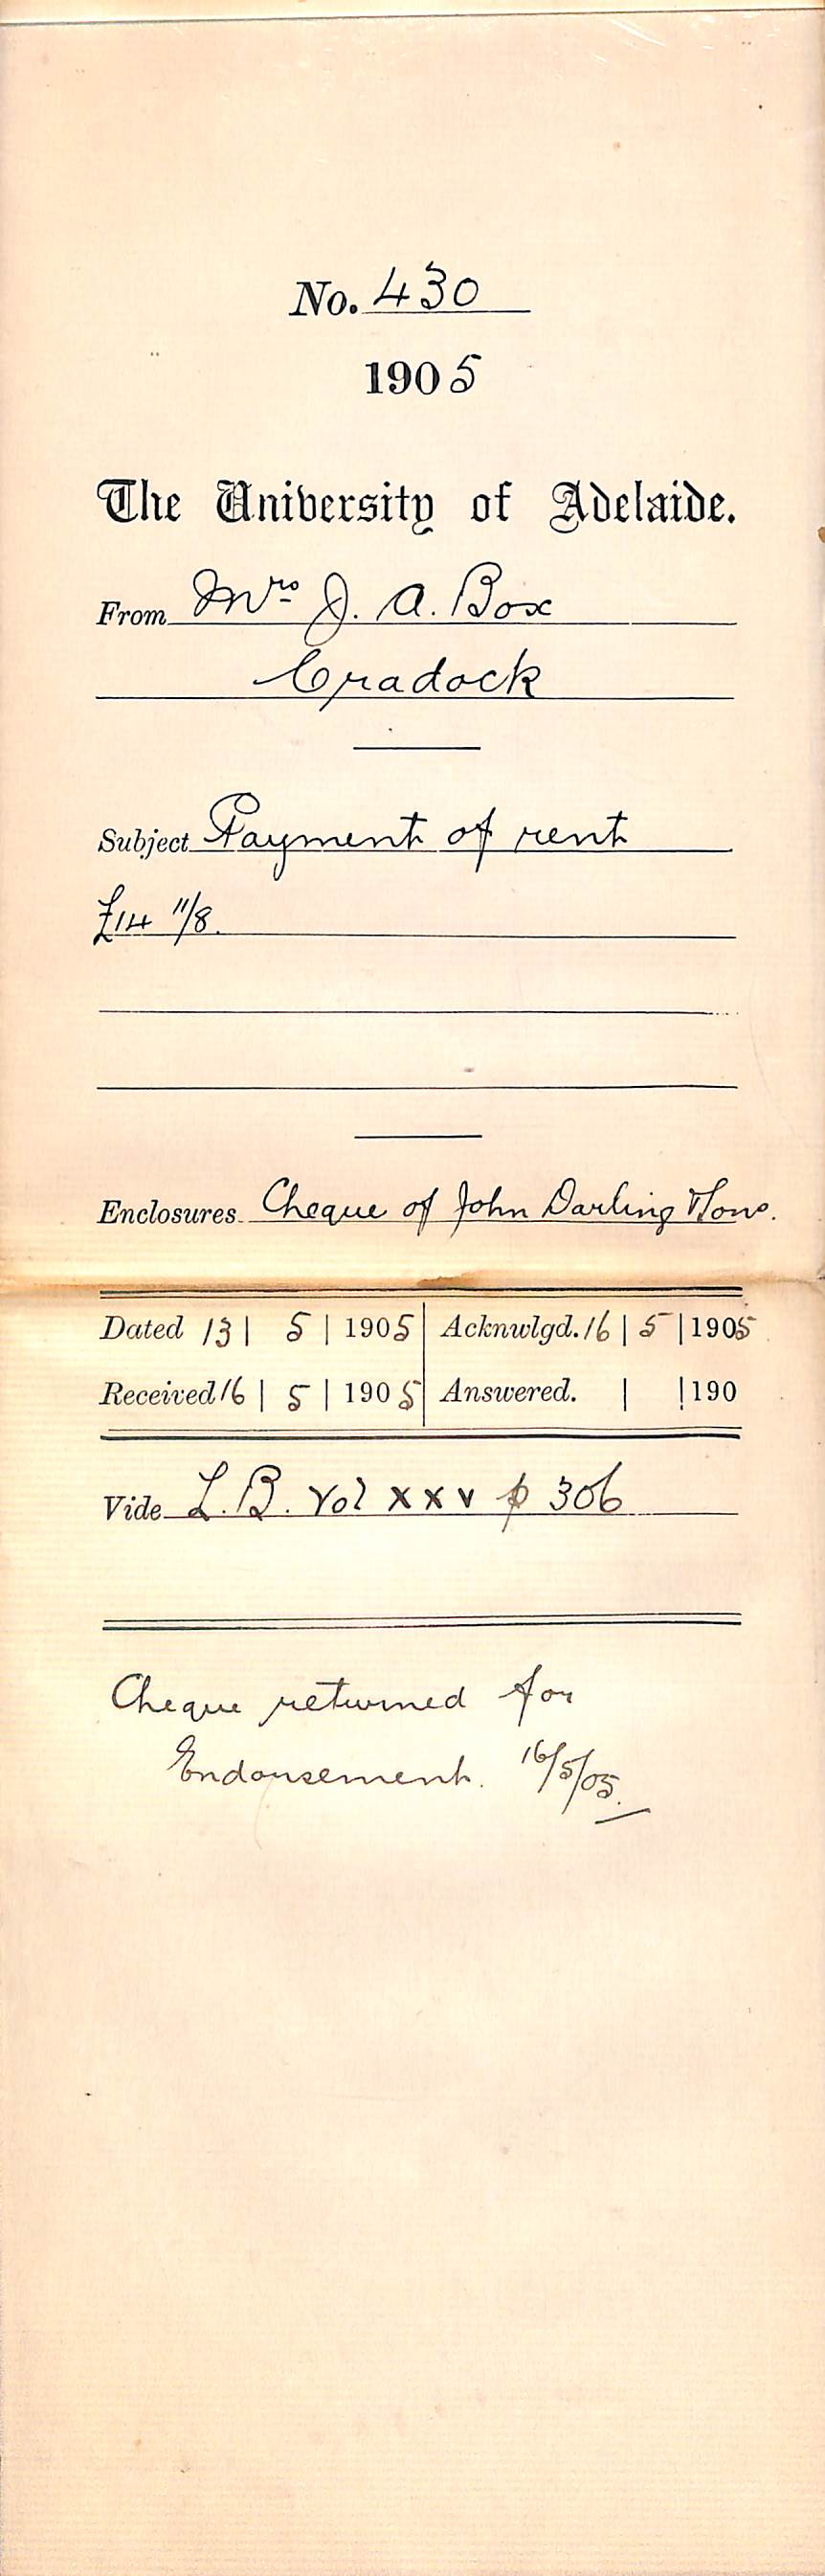 No. 430
1905
The University of Adelaide.
From Mrs J. A. Box
Cradock
Subject Payment of rent
£14 11/8.
Enclosures Cheque of John Darling & Sons.
Dated 13 | 5 | 1905 | Acknwlgd. 16 | 5 | 1905
Received 16 | 5 | 1905 | Answered. | | 190
Vide L.B. Vol XXV p 306
Cheque returned for
Endorsement. 16/5/05.